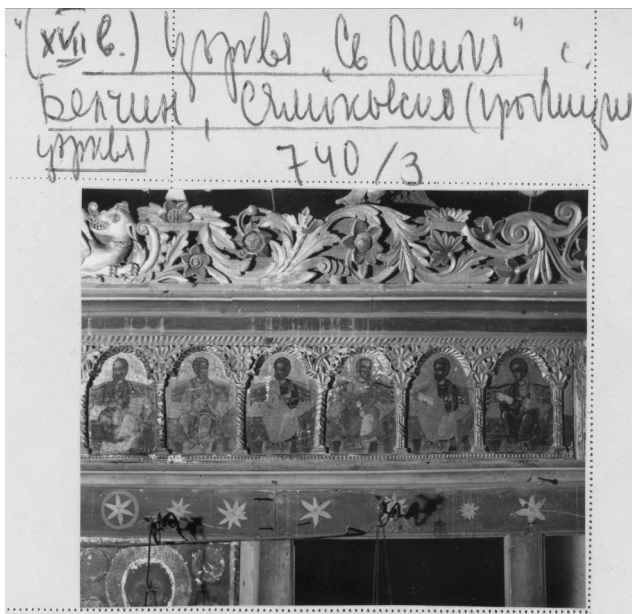 "(XVII в.) Църква "Св Петка" с.
Белчин, Самоковско (гробищна
църква)
740/3